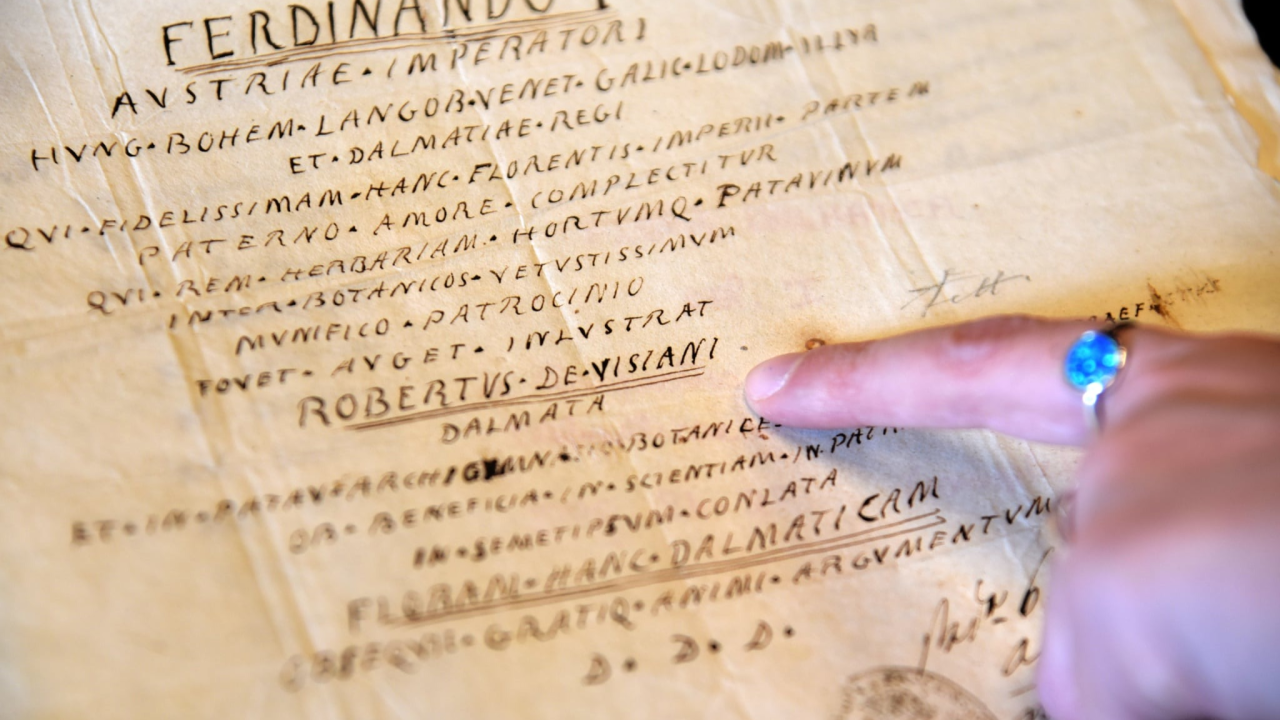 FERDINANDO I
AVSTRIAE • IMPERATORI
HVNG • BOHEM • LANGOB • VENET • GALIC • LODOM • ILLYR
ET • DALMATIAE • REGI
QVI • FIDELISSIMAM • HANC • FLORENTIS • IMPERII • PARTEM
PATERNO • AMORE • COMPLECTITVR
QVI • REM • HERBARIAM • HORTVMQ • PATAVINVM
INTER • BOTANICOS • VETVSTISSIMVM
MVNIFICO • PATROCINIO
FOVET • AVGET • INLVSTRAT
ROBERTVS • DE • VISIANI
DALMATA
ET • IN • PATAV • ARCHIGYMN •
OB • BENEFICIA • IN • SCIENTIAM • IN
IN • SEMETIPSVM • CONLATA
FLORAM • HANC • DALMATICAM
OBSEQVII • GRATIQ • ANIMI • ARGVMENTVM
D • D • D •